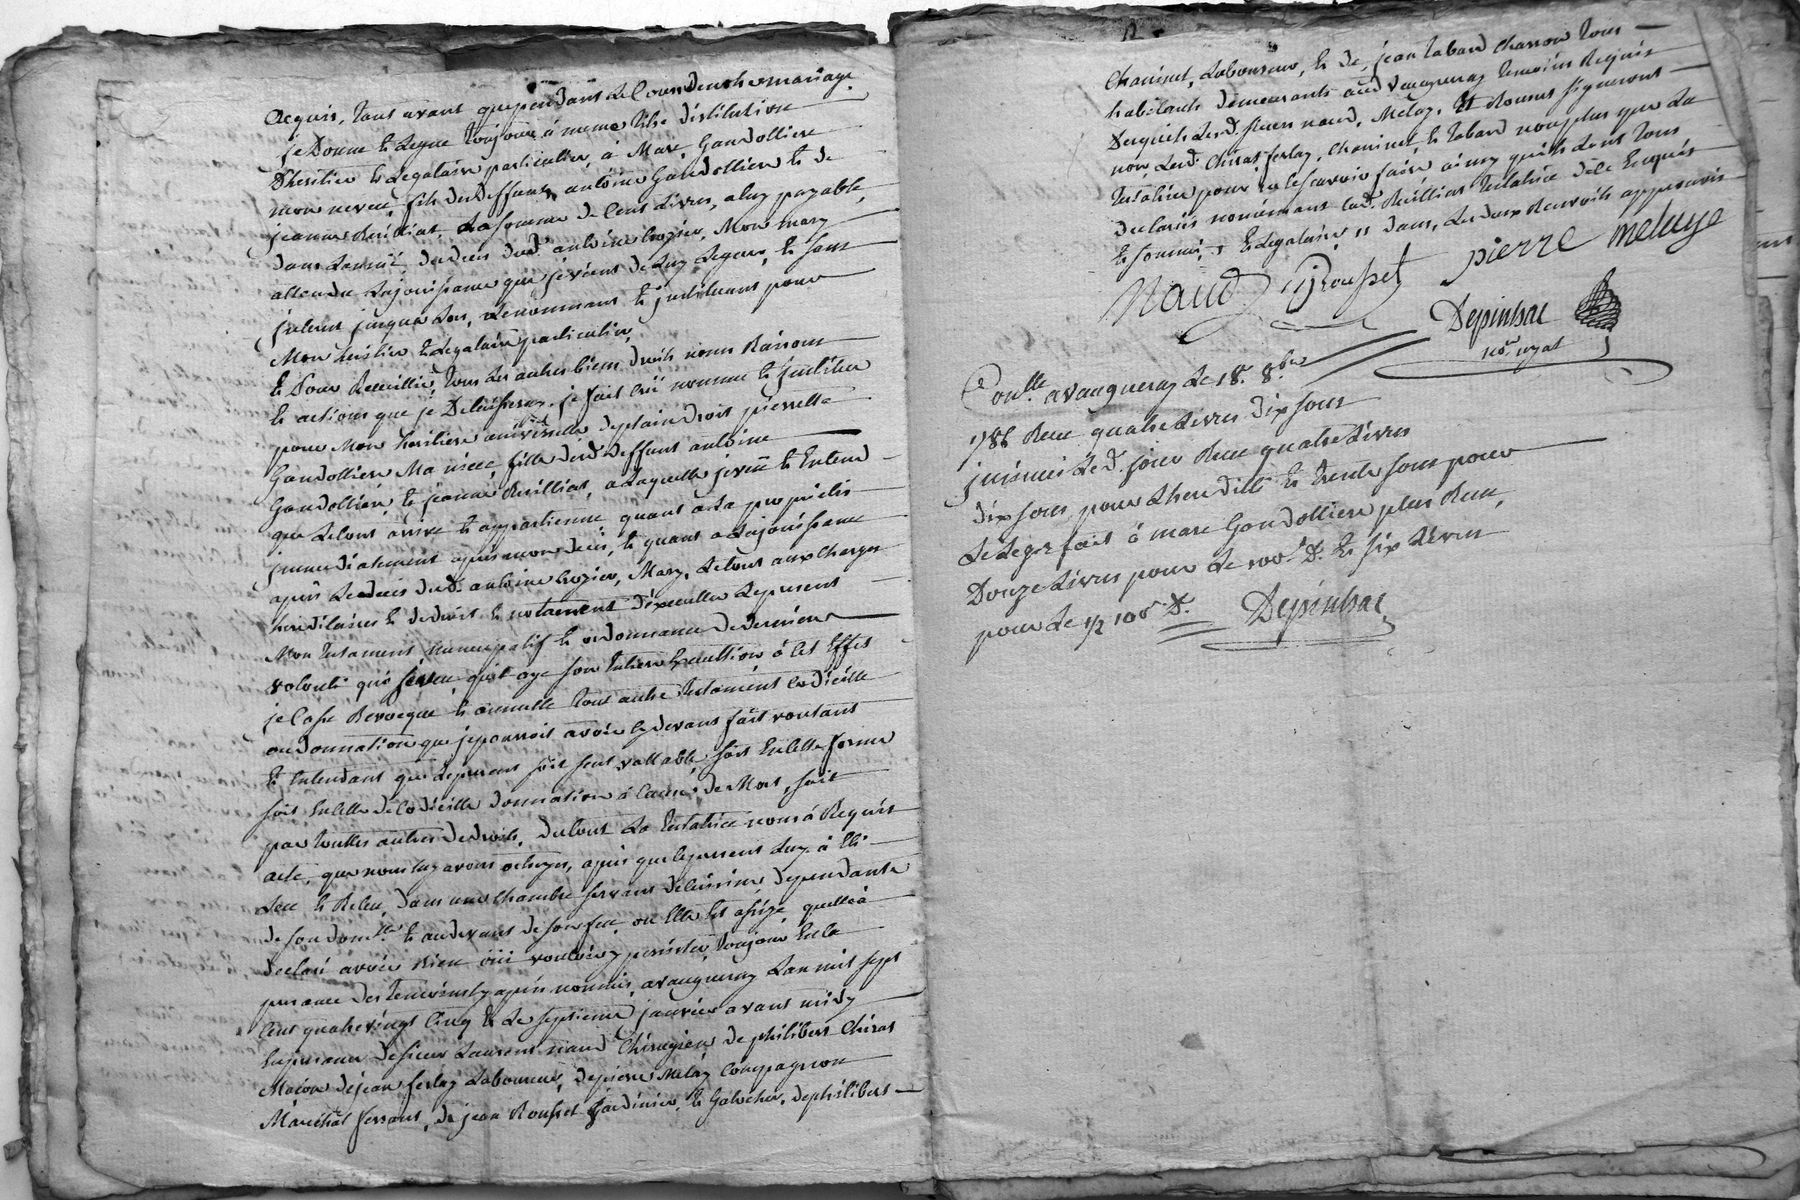 acquis, tant avant que pendant le cours de nôtre mariage.
je donne et legue toujours à meme titre d'istitution
d'heritier et legataire particulier, à Marc Gandolliere
mon neveu, fils des deffunts antoine Gandolliere et de
jeanne Reuilliat, la somme de Cent Livres, a luy payable,
dans Lannée, du deces dud. antoine Crozier, Mon mary
attendu la jouissance que je viens de luy Leguer, et sans
jnterest jusqua lors, le nommant et jnstituant pour
Mon heritier et Legataire particulier,
et Pour Recuillir tous les autres biens droits noms Raisons
et actions que je Delaisseray, je fait Créé nomme et jnstitue
pour Mon heritiere universelle de plain droit pierrette
Gandolliere Ma niece, fille dud. deffunt antoine
Gandolliere, et jeanne Reuilliat, a laquelle je veux et Entend
que le tout arrive et appartienne, quant a la proprieté
jmmediatement après mon deces, et quant a la jouissance
après Le deces dud. antoine Crozier, Mary, Le tout aux Charges
hereditaires et de droit et notament d'éxecutter Le present
Mon testament nuncupatif et ordonnance de derniere
volonté que je veux qu'il aye son Entiere Execution à cet Effet
je Casse Revocque et annulle tout autre testament Codicille
ou donnation que je pourrois avoir Cy devant fait voulant
et Entendant que Le present soit seul vallable, soit En cette forme
soit En celle de Codicille donnation à Cause de Mort, soit
par touttes autres de droits, du tout La testatrice nous à Requis
acte, que nous luy avons octroyez, après que le present luy à Eté
Leu et Releu, dans une Chambre servant de Cuisine, dependante
de son dom.lle et au devant de son feu, ou Elle Est assize, quelle à
declaré avoir bien oüi vouloir y persister, toujours En la
presence des temoins Cy après nommés, a vaugneray Lan mil sept
Cent quatre vingt Cinq et Le septieme janvier avant midy
En presence de sieur Laurent naud Chirurgien de philibert Chirat
Maçon de jean ferlay Laboureur, de pierre Melay Compagnon
Maréchal ferrant, de jean Rousset jardinier, et Galocher, de philibert
Chavinet, Laboureur, et de jean tabard charron tous
habitants demeurants aud. vaugneray temoins Requis
Desquels Lesd. sieurs naud, Melay, Et Rousset signeront
non Lesd. Chirat ferlay, Chavinet, et tabard non plus que La
testatrice pour ne le scavoir faire ainsy qu'ils L'ont tous
declarés nommement Lad. Reuilliat testatrice de ce Enquis
et sommés, et Legataire, dans, Les deux Renvoits approuvés
Naud JRousset pierre melaye
Depinhac
no.re royal
Con.lle a vaugneray Le 18. 8.bre
1786 Reçu quatre Livres dix sous
jnsinué Led. jour Reçu quatre Livres
dix sous, pour Lheredité et trente sous pour
Le Legs fait à marc Gandolliere plus Reçu,
Douze Livres pour Le 100.e D. et six Livres
pour Le 1/2 100.e D. Depinhac